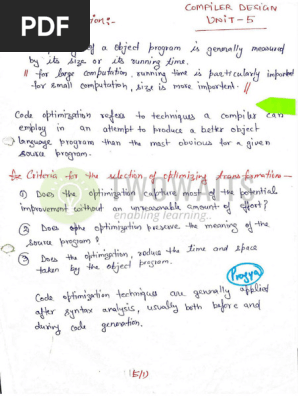 PDF
COMPILER DESIGN
UNIT-5
of a object program is generally measured
by its size or its running time.
// for large computation, running time is particularly important
for small computation, size is more important. //
Code optimization refers to techniques a compiler can
employ in an attempt to produce a better object
language program than the most obvious for a given
source program.
Criteria for the selection of optimizing transformation—
① Does the optimization capture most of the potential
improvement without an unreasonable amount of effort?
② Does the optimization preserve the meaning of the
source program?
③ Does the optimization, reduce the time and space
taken by the object program.
enabling learning..
Pragya
Code optimization techniques are generally applied
after syntax analysis, usually both before and
during code generation.
(5/1)